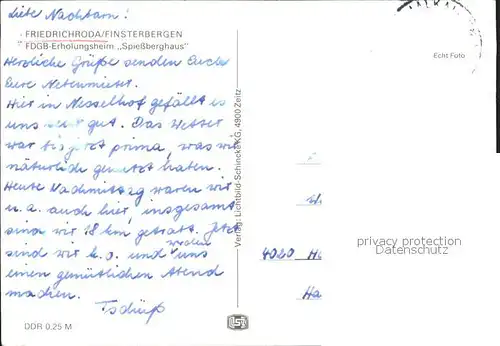 Liebe Nachbarn!
FRIEDRICHRODA/FINSTERBERGEN
FDGB-Erholungsheim „Spießberghaus"
Herzliche Grüße senden Euch
Eure Nebenmieter.
Hier in Nesselhof gefällt es
uns sehr gut. Das Wetter
war bis jetzt prima, was wir
natürlich genutzt haben.
Heute Nachmittag waren wir
u.a. auch hier, insgesamt
sind wir 18 km getrabt. Jetzt
sind wir k.o. und werden uns
einen gemütlichen Abend
machen.
Tschüß
DDR 0,25 M
Verlag: Lichtbild-Schincke KG, 4900 Zeitz
Echt Foto
4020
privacy protection
Datenschutz